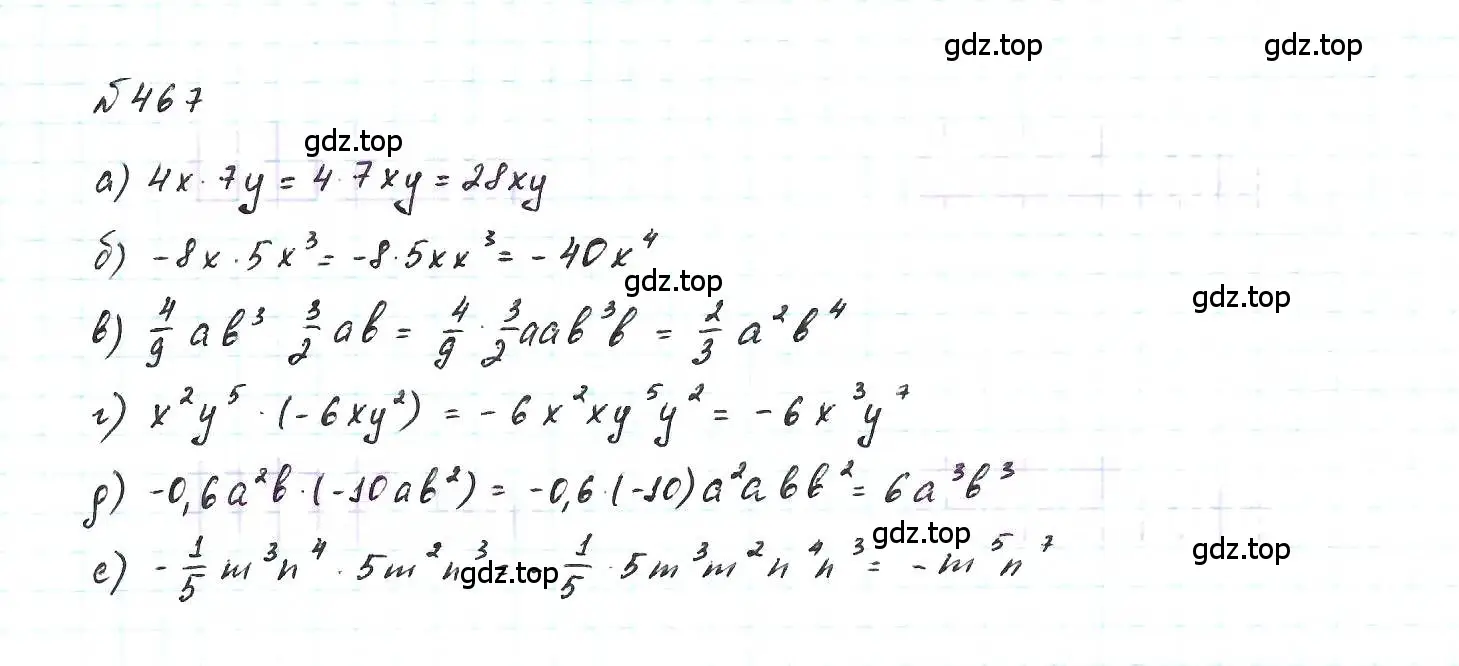 gdz.top gdz.top
№ 467
gdz.top
а) 4x · 7y = 4 · 7xy = 28xy
б) -8x · 5x³ = -8 · 5xx³ = -40x⁴
gdz.top gdz.top
в) 4/9 ab³ 3/2 ab = 4/9 · 3/2 aab³b = 2/3 a²b⁴
г) x²y⁵ · (-6xy²) = -6x²xy⁵y² = -6x³y⁷
д) -0,6a²b · (-10ab²) = -0,6 · (-10)a²abb² = 6a³b³
gdz.top gdz.top
е) -1/5 m³n⁴ · 5m²n³ gdz.top 1/5 · 5m³m²n⁴n³ = -m⁵n⁷